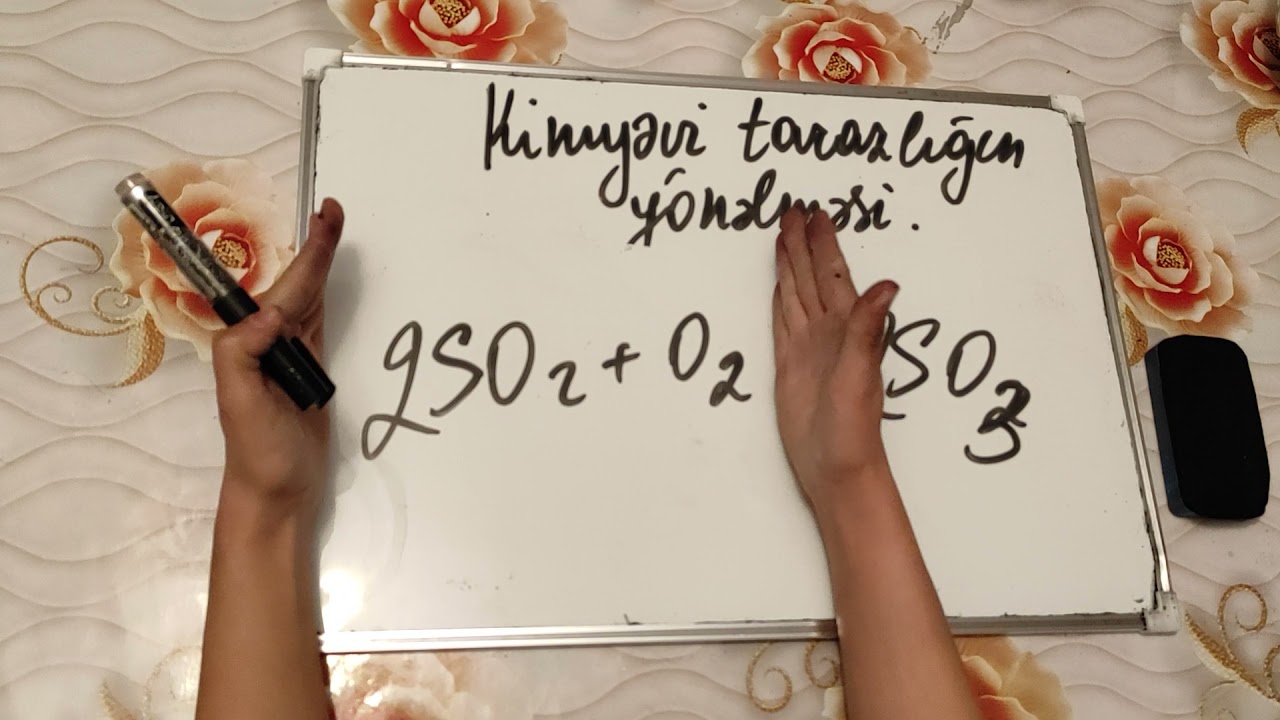 Kimyəvi tarazlığın
yönəlməsi.
2SO₂ + O₂ 2SO₃